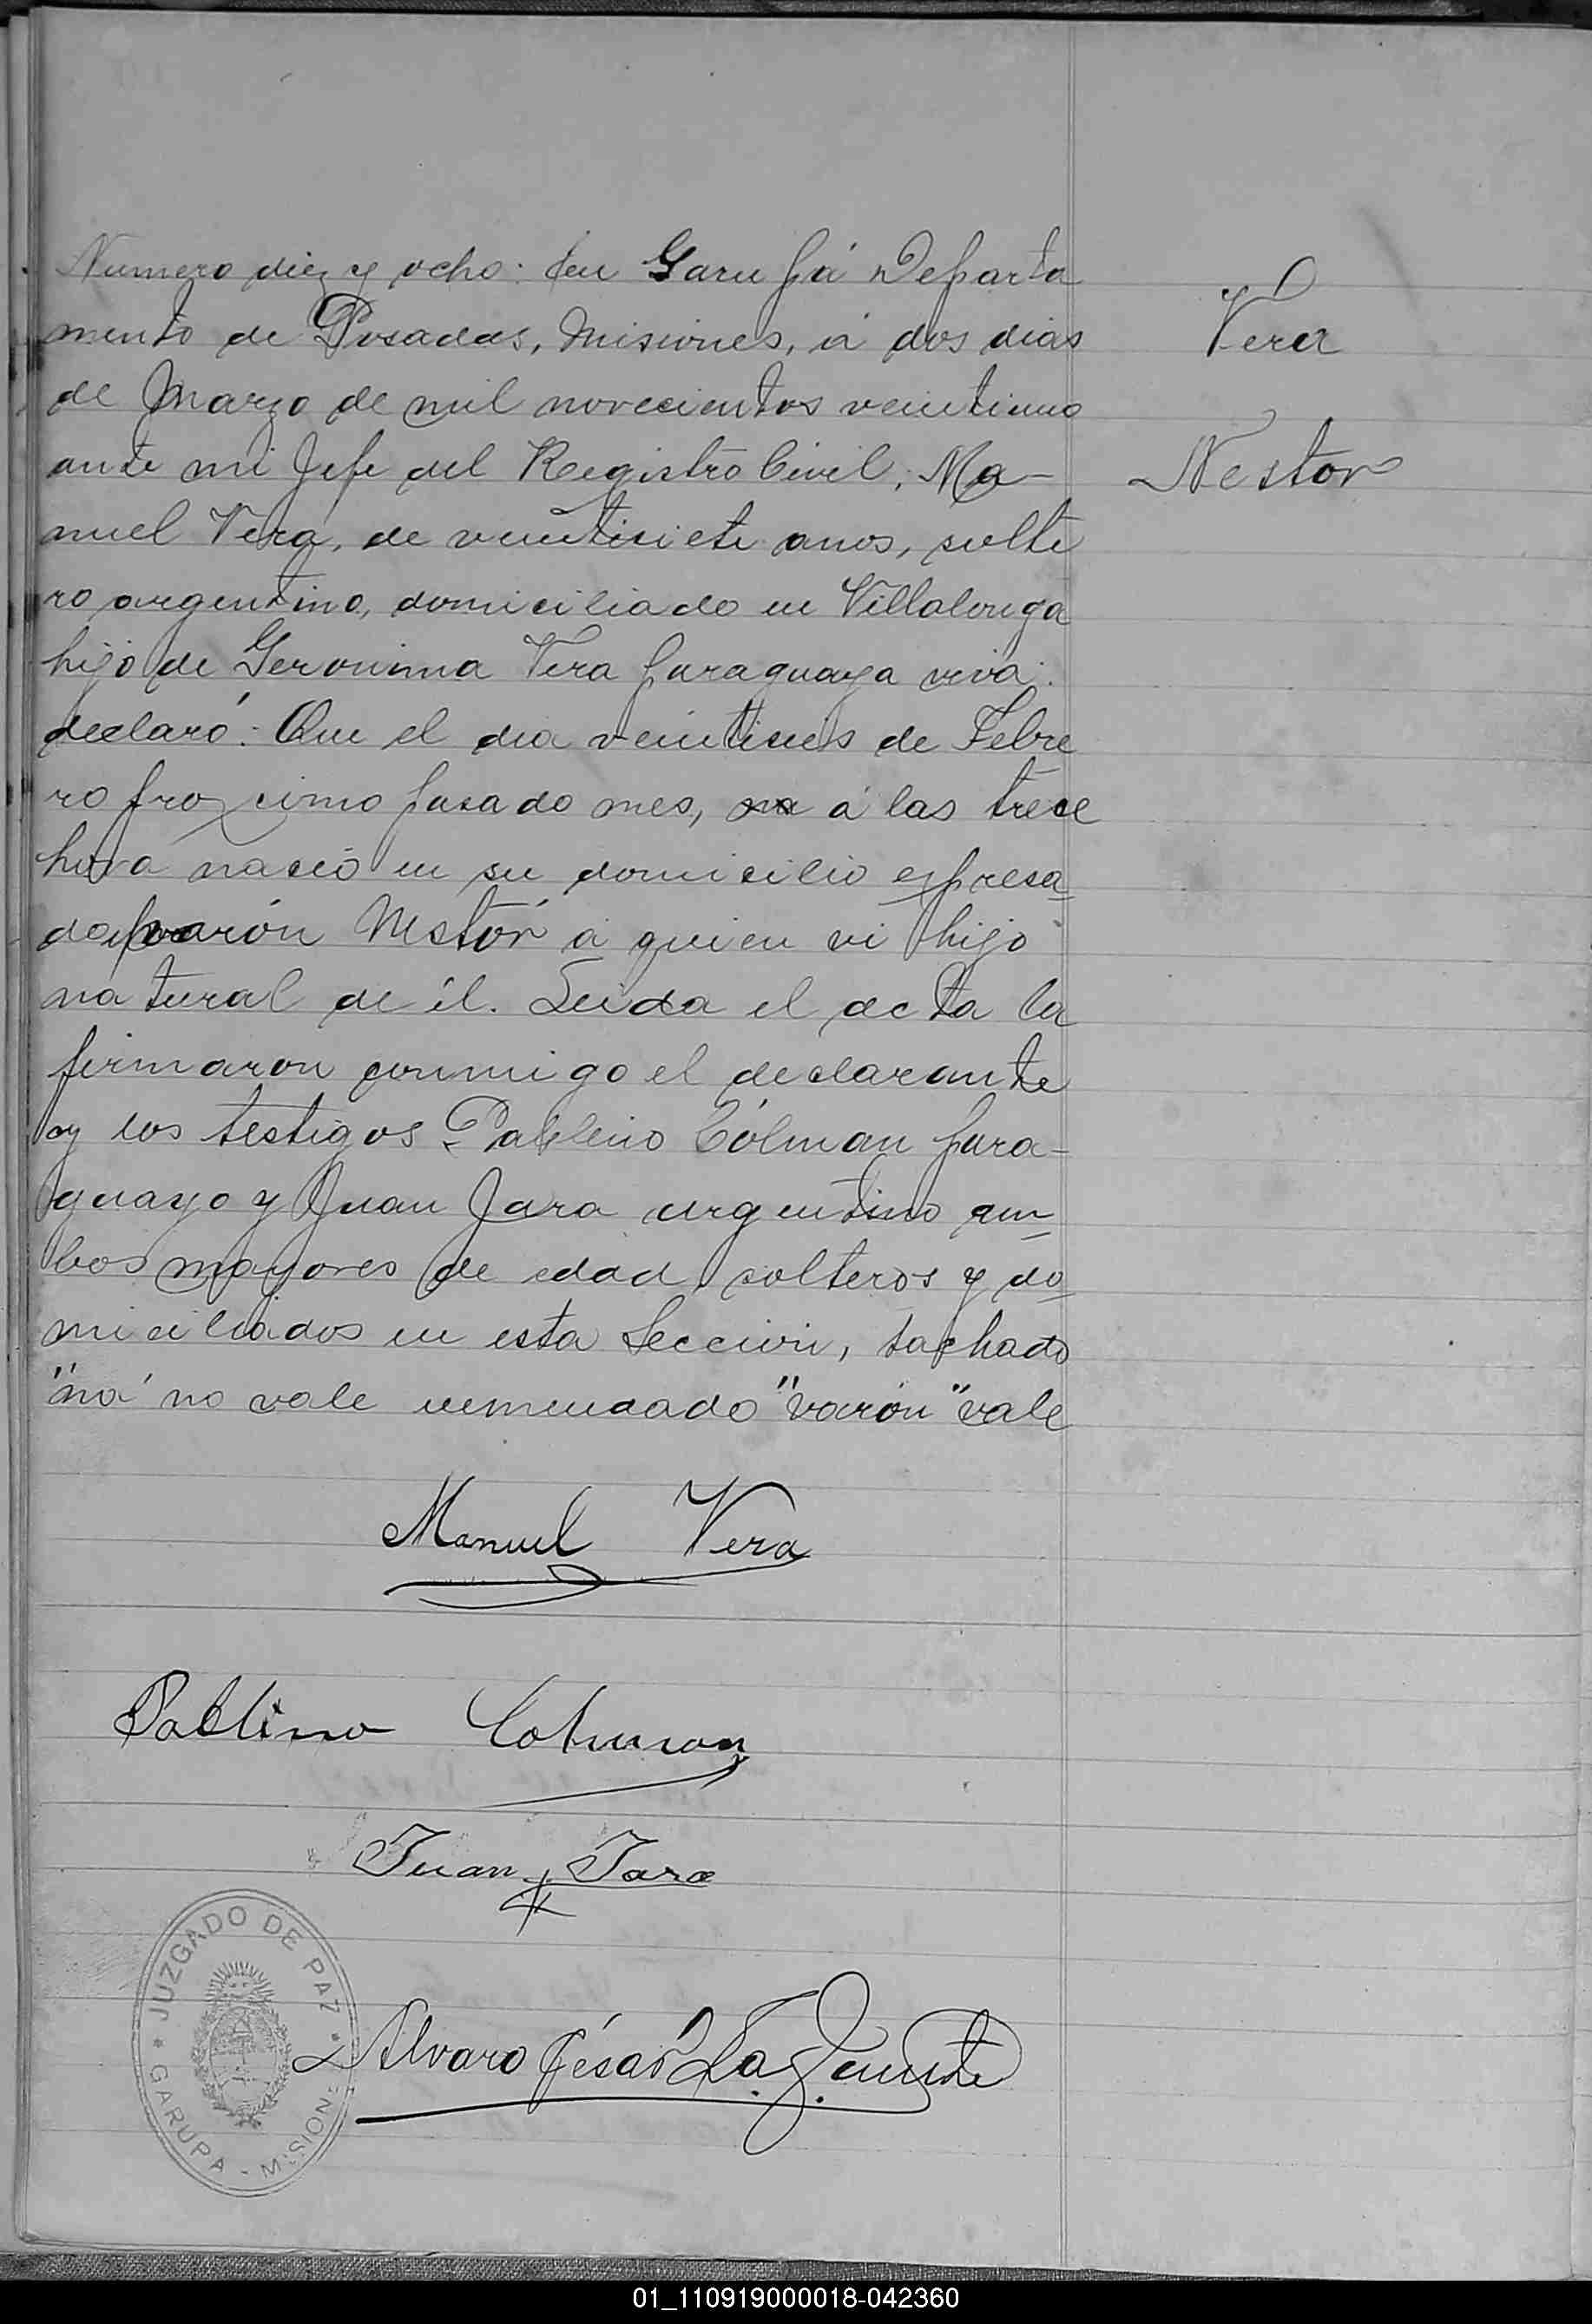 Numero diez y ocho: En Garupá Departa
mento de Posadas, Misiones, á dos dias
de Marzo de mil novecientos veintiuno
ante mi Jefe del Registro Civil, Ma-
nuel Vera, de veintisiete anos, solte
ro argentino, domiciliado en Villalonga
hijo de Geronima Vera paraguaya viva:
declaró: Que el dia veintiseis de Febre
ro proximo pasado mes, na á las trece
hora nació en su domicilio espresa-
do varón Nestór á quien vi hijo
natural de él. Leida el acta la
firmaron conmigo el declarante
y los testigos Pablino Cólman para-
guayo y Juan Jara argentino am-
bos mayores de edad, solteros y do-
miciliados en esta Sección, tachado
"na" no vale enmendado "varón" vale
Vera
Nestor
Manuel Vera
Pablino Colman
Juan Jara
Alvaro César La Puente
JUZGADO DE PAZ
GARUPA - MISIONES
01_110919000018-042360